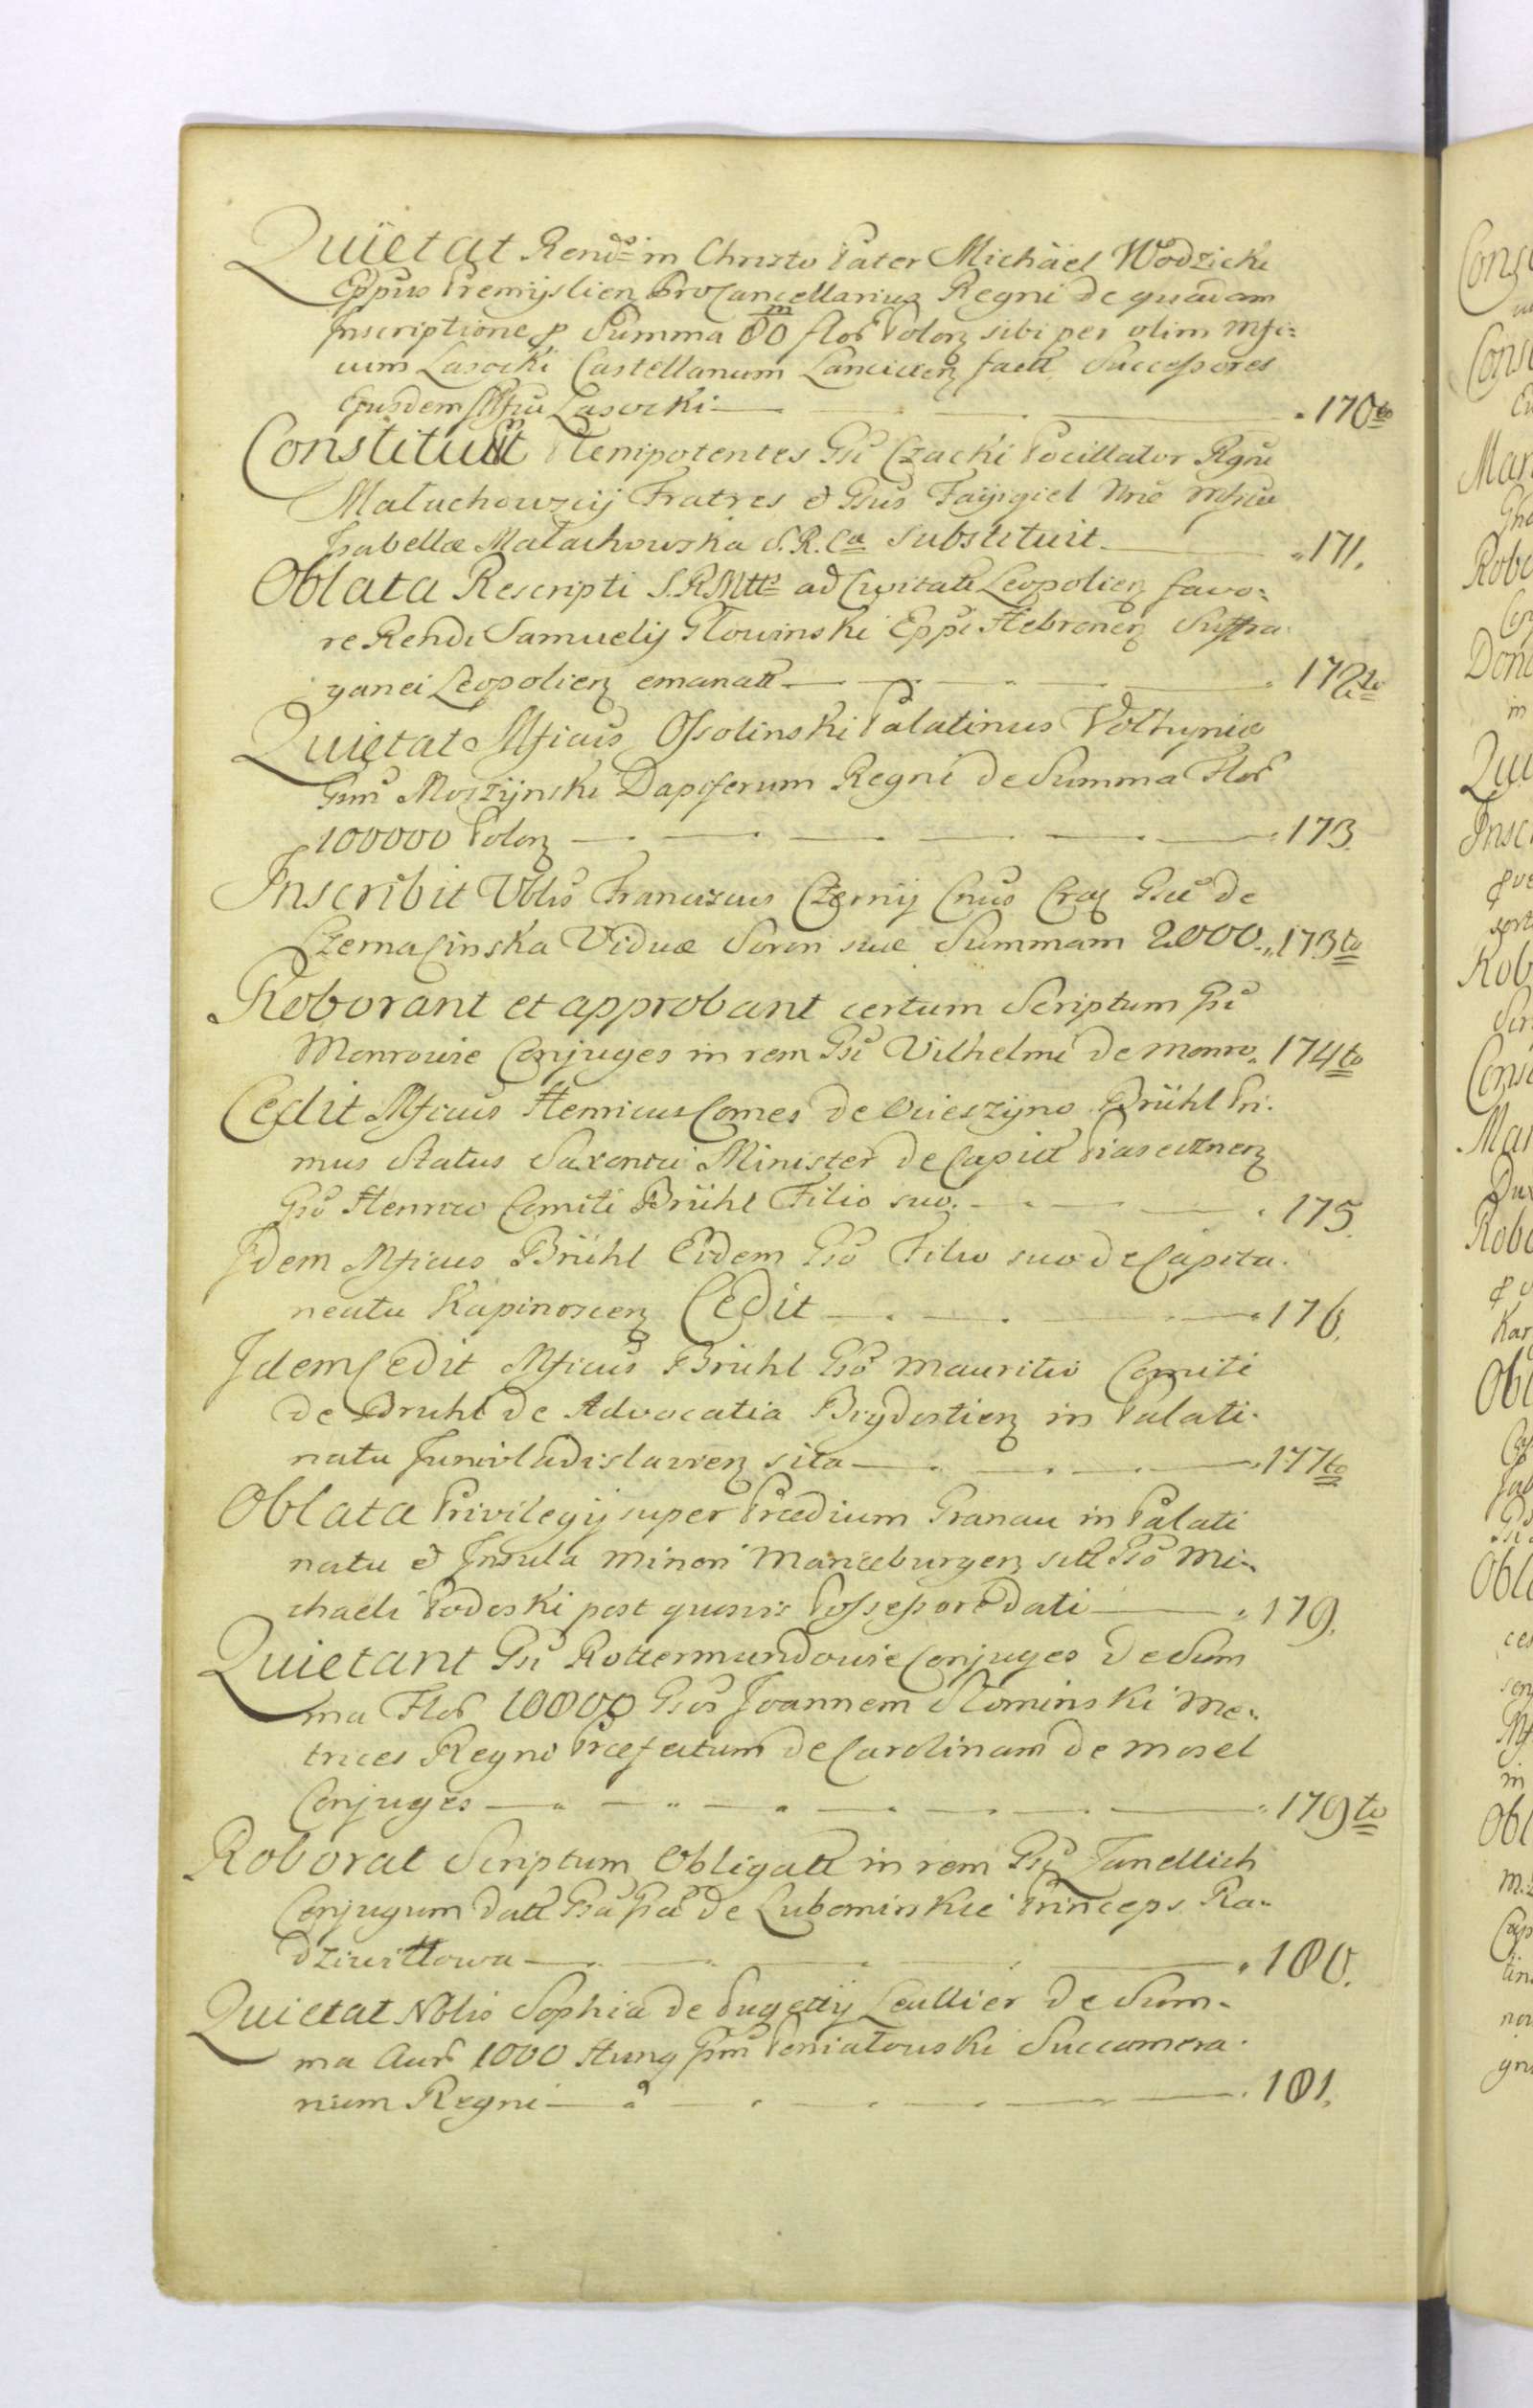 Quietat Rend͠s in Christo Pater Michael Wodzicki
Eppus Premyslien ProCancellarius Regni de quadam
Inscriptione p Summa 80 m flor Polon sibi per olim Mfi=
cum Lasocki Castellanum Lancicien factt Successores
Ejusdem Mfici Lasocki 170to
Constituunt Plenipotentes Gsi Czacki Pocillator Rgni
Małachowscij Fratres & Gsus Faygiel Nne Mficae
Isabellae Małachowska S.R. Substituit 171.
Oblata Rescripti S.R.Mttis ad Civitatt Leopolien favo=
re Rendi Samuelis Głowinski Eppi Hebronen Suffra
ganei Leopolien emanatt 172to
Quietat Mficus Ossolinski Palatinus Volhyniae
Gsum Moszynski Dapiferum Regni de Summa Flor
100000 Polon 173.
Inscribit Nblis Franciscus Czerny Gsae de
Czerna Cinska Viduae Sorori suae Summam 2000 173to
Roborant et approbant certum Scriptum Gsi
Monrowie Conjuges in rem Gsi Vilhelmi de Monro 174to
Cedit Mficus Henricus Comes de Cieszyno Brühl Pri=
mus Status Saxonici Minister de Capitt Piasecznen
Gso Henrico Comiti Brühl Filio suo. 175.
Idem Mficus Brühl Eidem Gso Filio suo de Capita=
neatu Kapinoscien Cedit 176.
Idem Cedit Mficus Brühl Gso Mauritio Comiti
de Bruhl de Advocatia Bydostien in Palati=
natu Junivladislavien sita 177to
Oblata Privilegij super Praedium Granau in Palati
natu & Insula minori Marieburgen sitt Gso Mi=
chaeli Podoski post quosvis Possessore dati 179.
Quietant Gsi Rottermundowie Conjuges de Sum
ma Flor 10000 Gsos Joannem Słominski Me=
trices Regni Praefectum & Carolinam de Mosel
Conjuges 179to
Roborat Scriptum Obligatt in rem Jandllich
Conjugum datt Gsa de Lubomirskie Princeps Ra=
dziwiłłowa 180.
Quietat Nblis Sophia de Pugetty Leullier de Sum=
ma Aur 1000 Hung Gsum Poniatowski Succamera=
rium Regni 181.